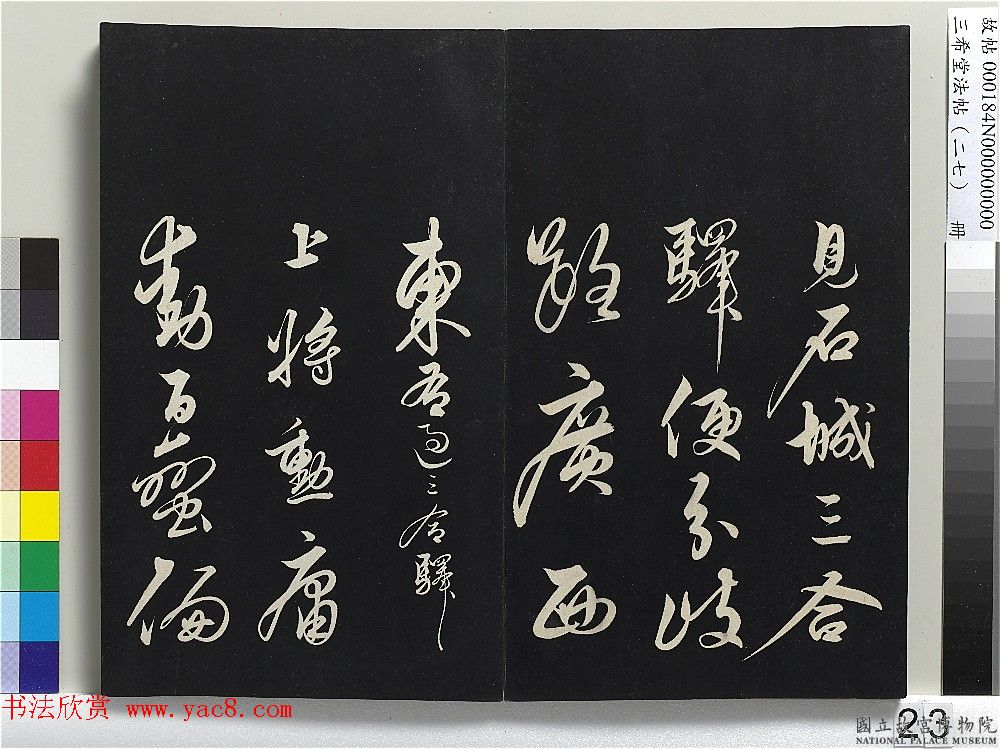 見石城三合
驛便分岐
路廣西
東 右過三合驛
上將勳庸
動百蠻偏
故帖 000184N000000000
三希堂法帖(二七) 冊
书法欣赏 www.yac8.com
23
國立故宮博物院
NATIONAL PALACE MUSEUM